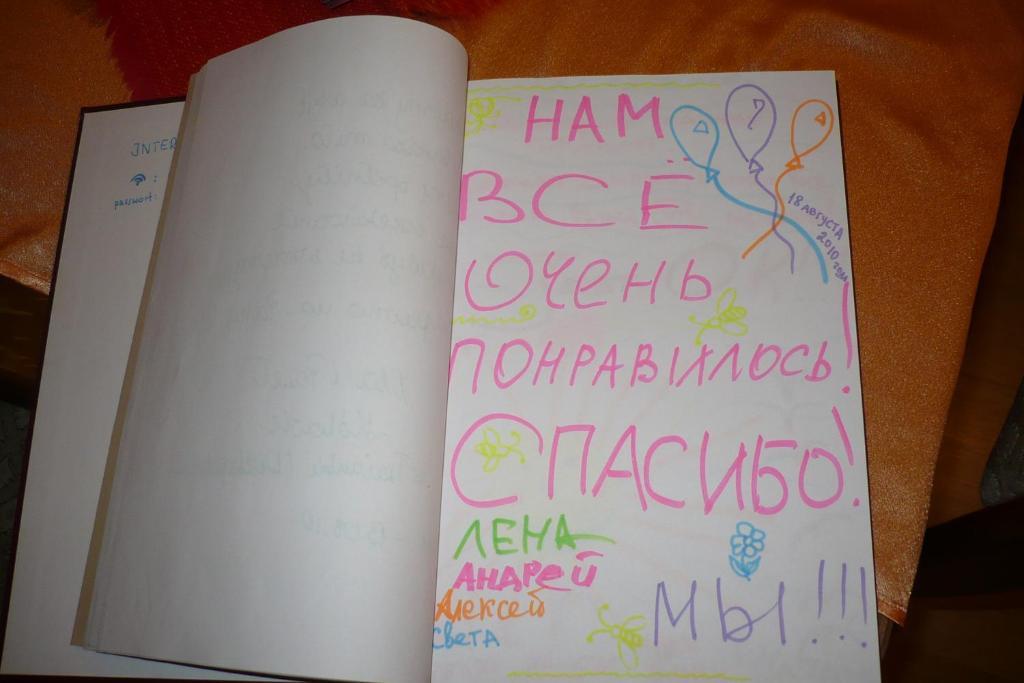 INTER
passwort:
НАМ
ВСЁ
ОЧЕНЬ
ПОНРАВИЛОСЬ!
СПАСИБО!
7
18 АВГУСТА
2010 года
ЛЕНА
АНДРЕЙ
Алексей
Света
МЫ!!!